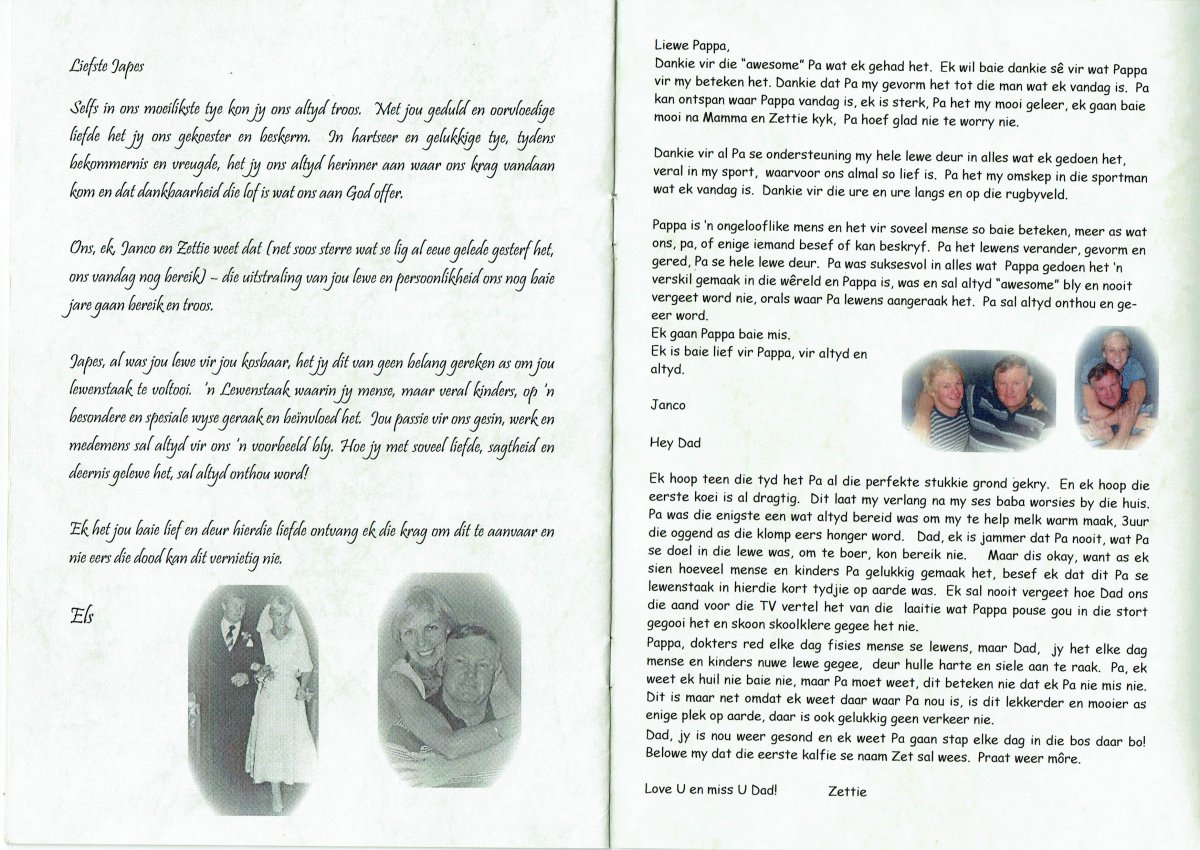 Liefste Japes
Selfs in ons moeilikste tye kon jy ons altyd troos. Met jou geduld en oorvloedige
liefde het jy ons gekoester en beskerm. In hartseer en gelukkige tye, tydens
bekommernis en vreugde, het jy ons altyd herinner aan waar ons krag vandaan
kom en dat dankbaarheid die lof is wat ons aan God offer.
Ons, ek, Janco en Zettie weet dat (net soos sterre wat se lig al eeue gelede gesterf het,
ons vandag nog bereik) – die uitstraling van jou lewe en persoonlikheid ons nog baie
jare gaan bereik en troos.
Japes, al was jou lewe vir jou kosbaar, het jy dit van geen belang gereken as om jou
lewenstaak te voltooi. 'n Lewenstaak waarin jy mense, maar veral kinders, op 'n
besondere en spesiale wyse geraak en beïnvloed het. Jou passie vir ons gesin, werk en
medemens sal altyd vir ons 'n voorbeeld bly. Hoe jy met soveel liefde, sagtheid en
deernis gelewe het, sal altyd onthou word!
Ek het jou baie lief en deur hierdie liefde ontvang ek die krag om dit te aanvaar en
nie eers die dood kan dit vernietig nie.
Els
Liewe Pappa,
Dankie vir die "awesome" Pa wat ek gehad het. Ek wil baie dankie sê vir wat Pappa
vir my beteken het. Dankie dat Pa my gevorm het tot die man wat ek vandag is. Pa
kan ontspan waar Pappa vandag is, ek is sterk, Pa het my mooi geleer, ek gaan baie
mooi na Mamma en Zettie kyk, Pa hoef glad nie te worry nie.
Dankie vir al Pa se ondersteuning my hele lewe deur in alles wat ek gedoen het,
veral in my sport, waarvoor ons almal so lief is. Pa het my omskep in die sportman
wat ek vandag is. Dankie vir die ure en ure langs en op die rugbyveld.
Pappa is 'n ongelooflike mens en het vir soveel mense so baie beteken, meer as wat
ons, pa, of enige iemand besef of kan beskryf. Pa het lewens verander, gevorm en
gered, Pa se hele lewe deur. Pa was suksesvol in alles wat Pappa gedoen het 'n
verskil gemaak in die wêreld en Pappa is, was en sal altyd "awesome" bly en nooit
vergeet word nie, orals waar Pa lewens aangeraak het. Pa sal altyd onthou en ge-
eer word.
Ek gaan Pappa baie mis.
Ek is baie lief vir Pappa, vir altyd en
altyd.
Janco
Hey Dad
Ek hoop teen die tyd het Pa al die perfekte stukkie grond gekry. En ek hoop die
eerste koei is al dragtig. Dit laat my verlang na my ses baba worsies by die huis.
Pa was die enigste een wat altyd bereid was om my te help melk warm maak, 3uur
die oggend as die klomp eers honger word. Dad, ek is jammer dat Pa nooit, wat Pa
se doel in die lewe was, om te boer, kon bereik nie. Maar dis okay, want as ek
sien hoeveel mense en kinders Pa gelukkig gemaak het, besef ek dat dit Pa se
lewenstaak in hierdie kort tydjie op aarde was. Ek sal nooit vergeet hoe Dad ons
die aand voor die TV vertel het van die laaitie wat Pappa pouse gou in die stort
gegooi het en skoon skoolklere gegee het nie.
Pappa, dokters red elke dag fisies mense se lewens, maar Dad, jy het elke dag
mense en kinders nuwe lewe gegee, deur hulle harte en siele aan te raak. Pa, ek
weet ek huil nie baie nie, maar Pa moet weet, dit beteken nie dat ek Pa nie mis nie.
Dit is maar net omdat ek weet daar waar Pa nou is, is dit lekkerder en mooier as
enige plek op aarde, daar is ook gelukkig geen verkeer nie.
Dad, jy is nou weer gesond en ek weet Pa gaan stap elke dag in die bos daar bo!
Belowe my dat die eerste kalfie se naam Zet sal wees. Praat weer môre.
Love U en miss U Dad! Zettie